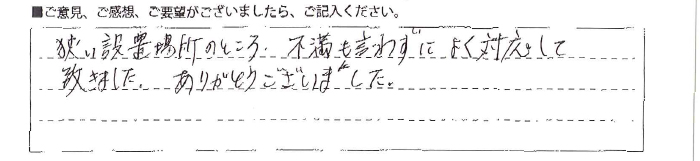 ■ご意見、ご感想、ご要望がございましたら、ご記入ください。
狭い設置場所のところ、不満も言わずによく対応して
致きました。ありがとうございました。